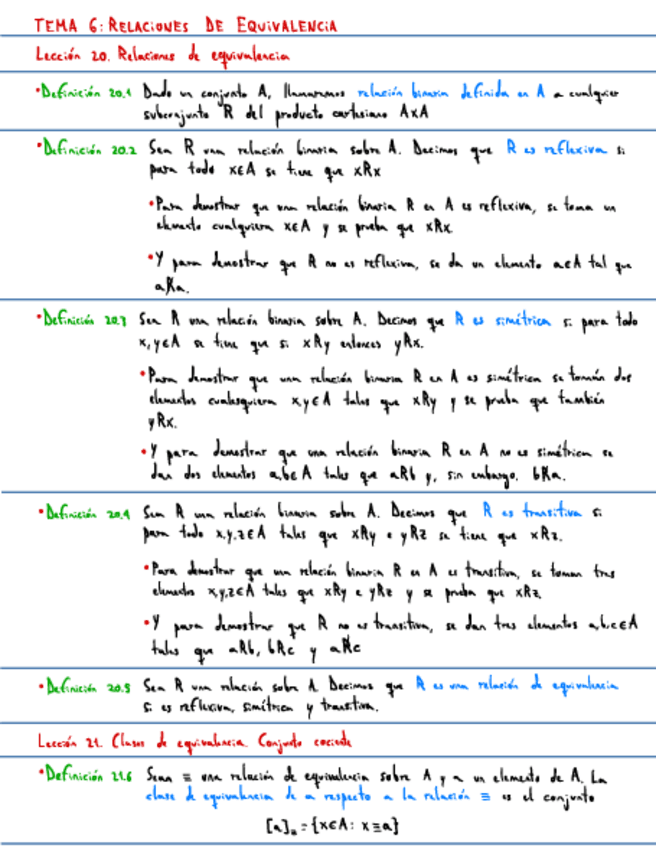 TEMA 6: RELACIONES DE EQUIVALENCIA
Lección 20. Relaciones de equivalencia
•Definición 20.1 Dado un conjunto A, llamaremos relación binaria definida en A a cualquier
subconjunto R del producto cartesiano AxA
•Definición 20.2 Sea R una relación binaria sobre A. Decimos que R es reflexiva si
para todo x∈A se tiene que xRx
•Para demostrar que una relación binaria R en A es reflexiva, se toma un
elemento cualquiera x∈A y se prueba que xRx.
•Y para demostrar que R no es reflexiva, se da un elemento a∈A tal que
aR̸a.
•Definición 20.3 Sea R una relación binaria sobre A. Decimos que R es simétrica si para todo
x,y∈A se tiene que si xRy entonces yRx.
•Para demostrar que una relación binaria R en A es simétrica se toman dos
elementos cualesquiera x,y∈A tales que xRy y se prueba que también
yRx.
•Y para demostrar que una relación binaria R en A no es simétrica se
dan dos elementos a,b∈A tales que aRb y, sin embargo, bR̸a.
•Definición 20.4 Sea R una relación binaria sobre A. Decimos que R es transitiva si
para todo x,y,z∈A tales que xRy e yRz se tiene que xRz.
•Para demostrar que una relación binaria R en A es transitiva, se toman tres
elementos x,y,z∈A tales que xRy e yRz y se prueba que xRz.
•Y para demostrar que R no es transitiva, se dan tres elementos a,b,c∈A
tales que aRb, bRc y aR̸c
•Definición 20.5 Sea R una relación sobre A. Decimos que R es una relación de equivalencia
si es reflexiva, simétrica y transitiva.
Lección 21. Clases de equivalencia. Conjunto cociente
•Definición 21.6 Sean ≡ una relación de equivalencia sobre A y a un elemento de A. La
clase de equivalencia de a respecto a la relación ≡ es el conjunto
[a]≡ = {x∈A: x≡a}